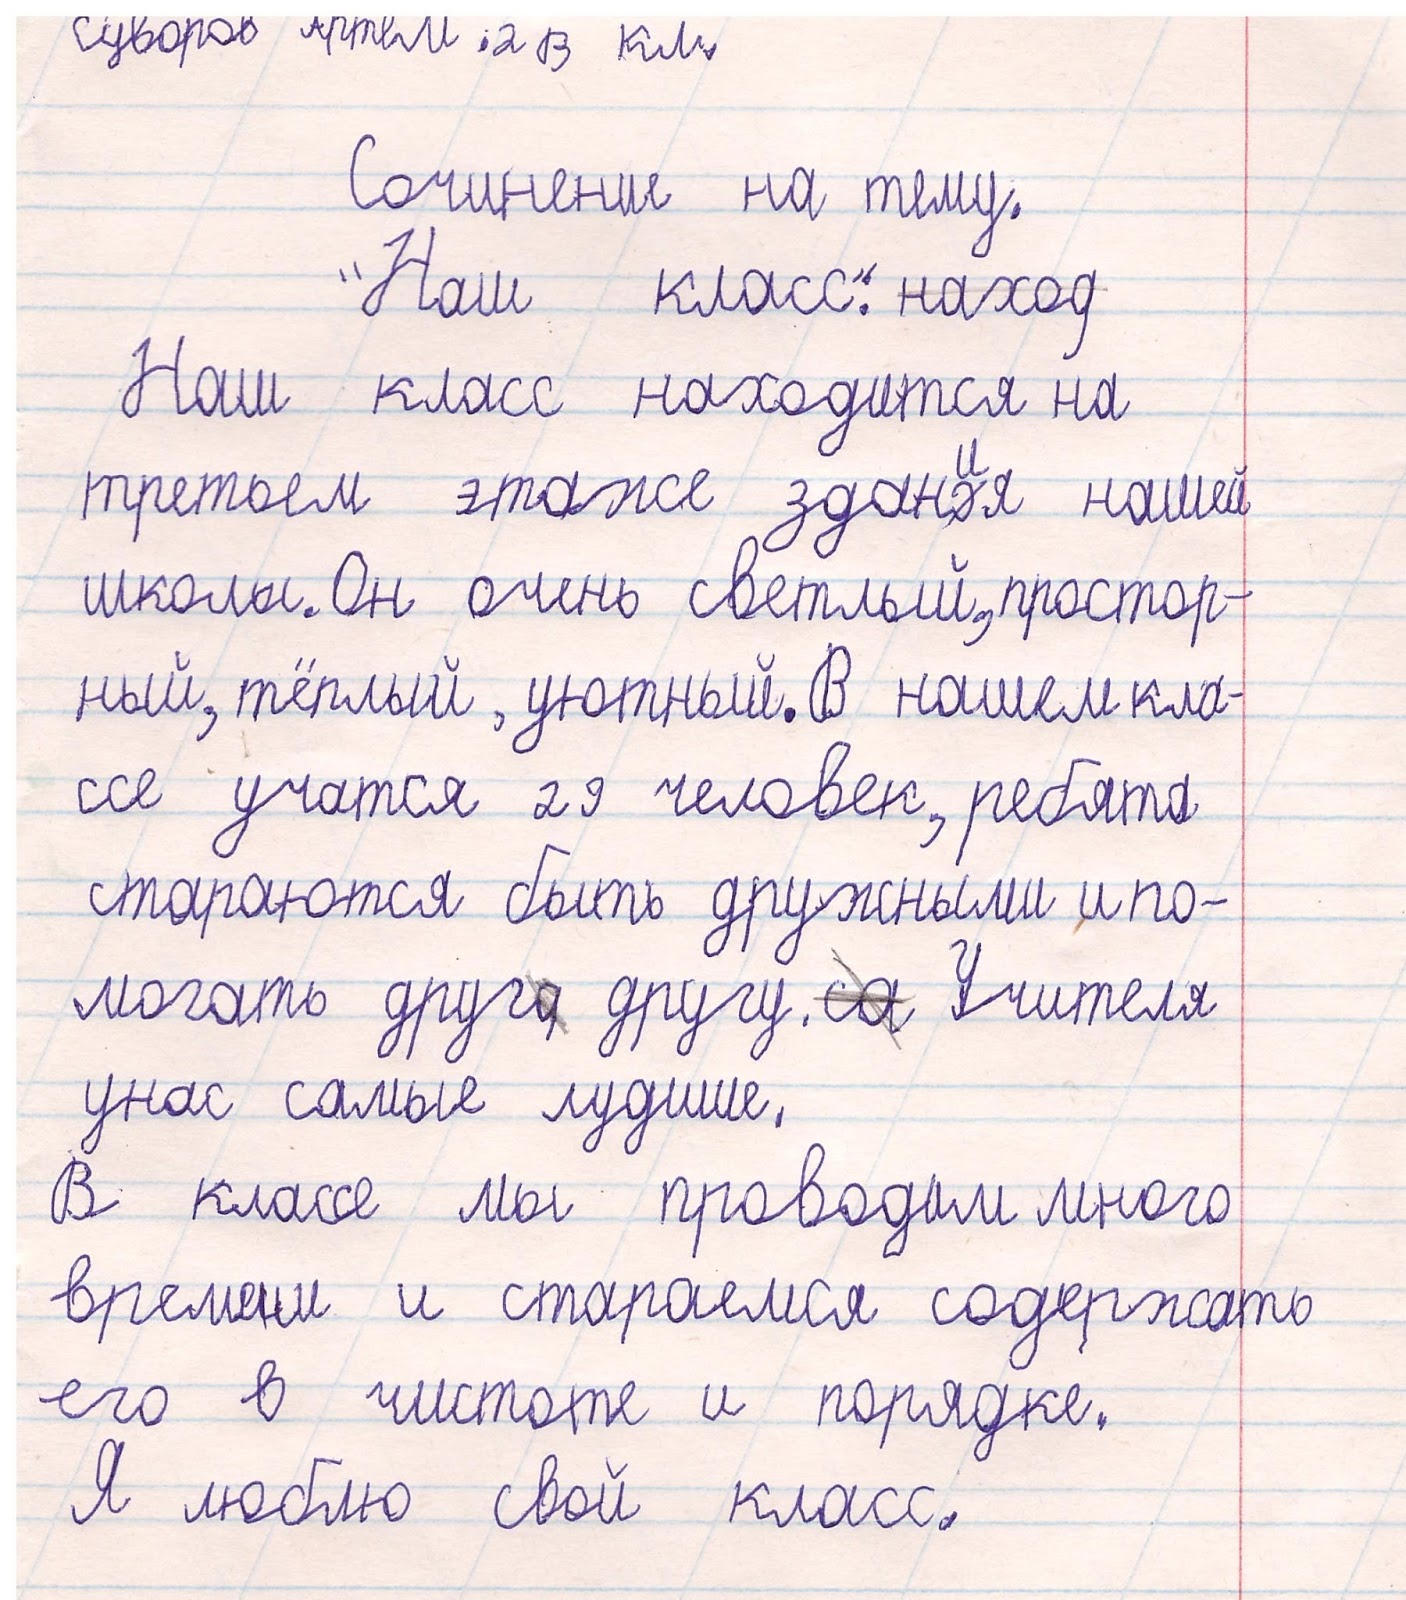 Суворов Артем .2 в кл.
Сочинение на тему.
"Наш класс". наход
Наш класс находится на
третьем этаже здания нашей
школы. Он очень светлый, простор-
ный, тёплый, уютный. В нашем кла-
ссе учатся 29 человек, ребята
стараются быть дружными и по-
могать друг другу. са Учителя
унас самые лудшие.
В классе мы проводим много
времени и стараемся содержать
его в чистоте и порядке.
Я люблю свой класс.